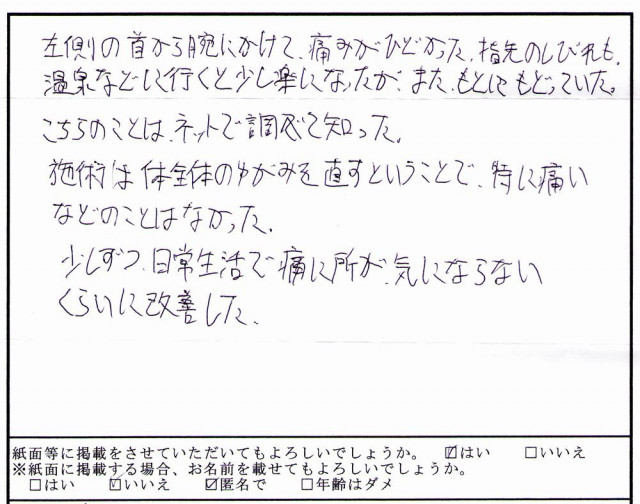 左側の首から腕にかけて、痛みがひどかった、指先のしびれも、
温泉などに行くと少し楽になったが、また、もとにもどっていた。
こちらのことは、ネットで調べて知った。
施術は体全体のゆがみを直すということで、特に痛い
などのことはなかった。
少しずつ、日常生活で痛に所が、気にならない
くらいに改善した。
紙面等に掲載をさせていただいてもよろしいでしょうか。 ☑はい □いいえ
※紙面に掲載する場合、お名前を載せてもよろしいでしょうか。
□はい ☑いいえ ☑匿名で □年齢はダメ